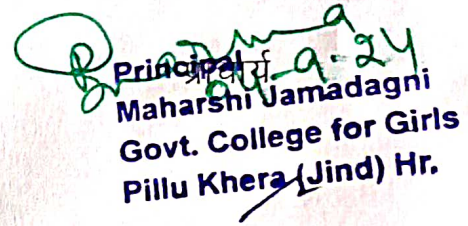 Principal
प्राचार्य
Maharshi Jamadagni
Govt. College for Girls
Pillu Khera (Jind) Hr.